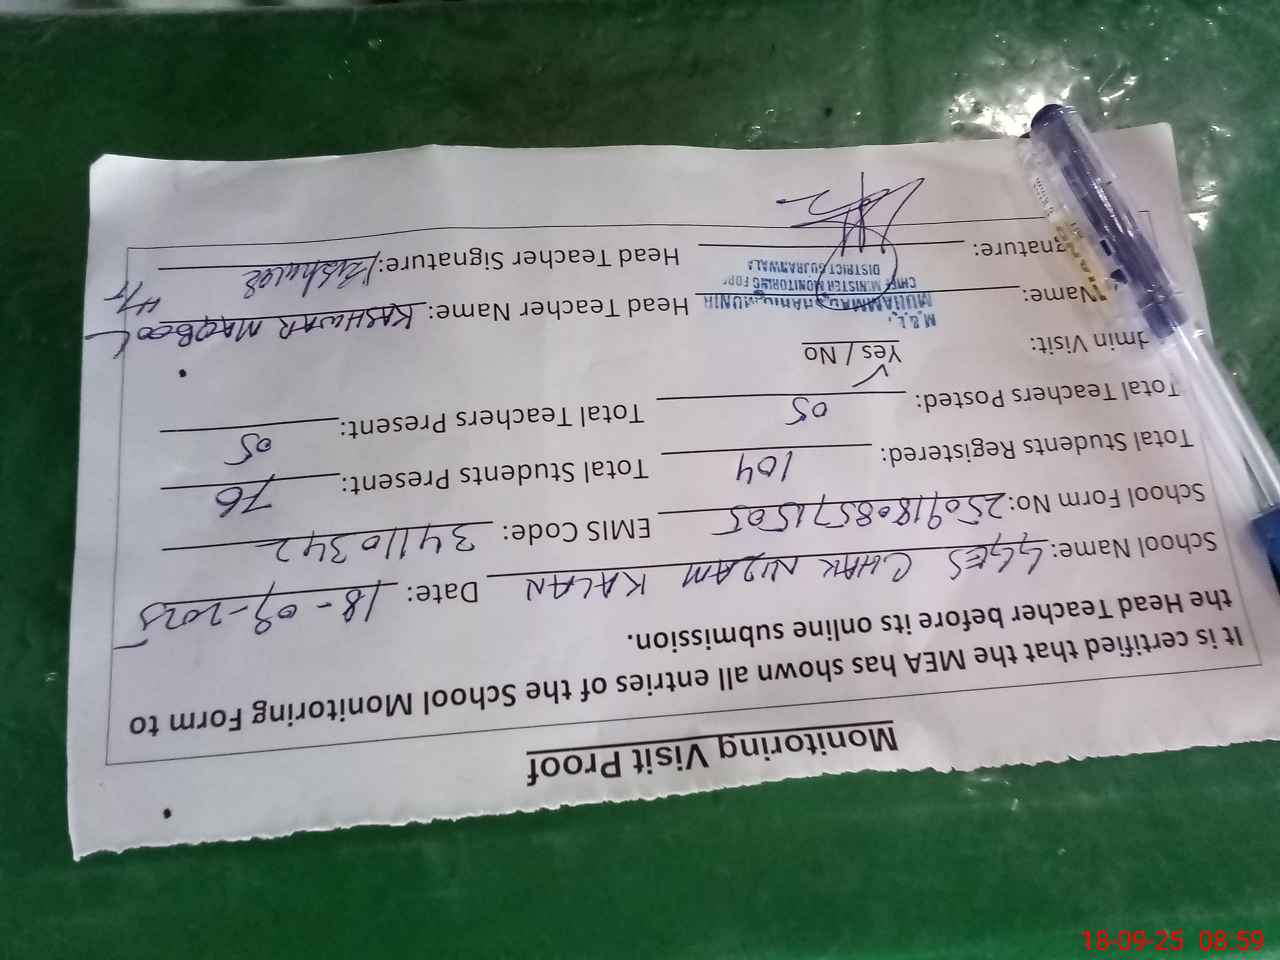 Monitoring Visit Proof
It is certified that the MEA has shown all entries of the School Monitoring Form to
the Head Teacher before its online submission.
School Name: GGES CHAK NIZAM KALAN Date: 18-09-2025
School Form No: 25091808571505 EMIS Code: 34110342
Total Students Registered: 104 Total Students Present: 76
Total Teachers Posted: 05 Total Teachers Present: 05
dmin Visit: Yes / No
Name: Head Teacher Name: KASHWAR MAQBOOL
H/T
M.& E.
MUHAMMAD MUNIR
CHIEF MINISTER MONITORING FORC
DISTRICT GUJRANWALA
gnature: Head Teacher Signature:
18-09-25 08:59